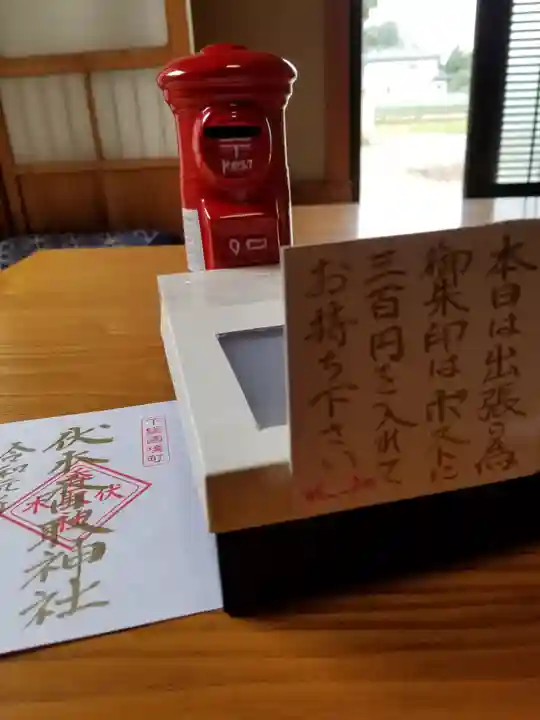 本日は出張の為
御朱印はポストに
三百円を入れて
お持ち下さい
〒
POST
下総國境町
伏木香取神社
令和元年